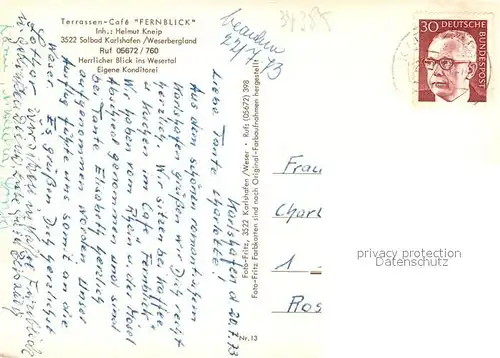 Terrassen-Café "FERNBLICK"
Inh.: Helmut Kneip
3522 Solbad Karlshafen/Weserbergland
Ruf 05672/760
Herrlicher Blick ins Wesertal
Eigene Konditorei
22/7.73
30 DEUTSCHE
BUNDESPOST
Karlshafen d 20.7.73
Liebe Tante Charlotte!
Aus dem schönen romantischen
Karlshafen grüßen wir Dich recht
herzlich. Wir sitzen bei Kaffee
u Kuchen im Café "Fernblick"
Wir haben vom Rhein u. der Mosel
Abschied genommen und sind
bei Tante Elisabeth herzlich
aufgenommen worden. Unser
Ausflug führte uns somit an die
Weser. Es grüßen Dich herzlichst
Foto-Fritz, 3522 Karlshafen/Weser · Ruf: (05672) 398
Foto-Fritz Farbkarten sind nach Original-Farbaufnahmen hergestellt
Nr. 13
Frau
Charl
1
Ros
privacy protection
watermark